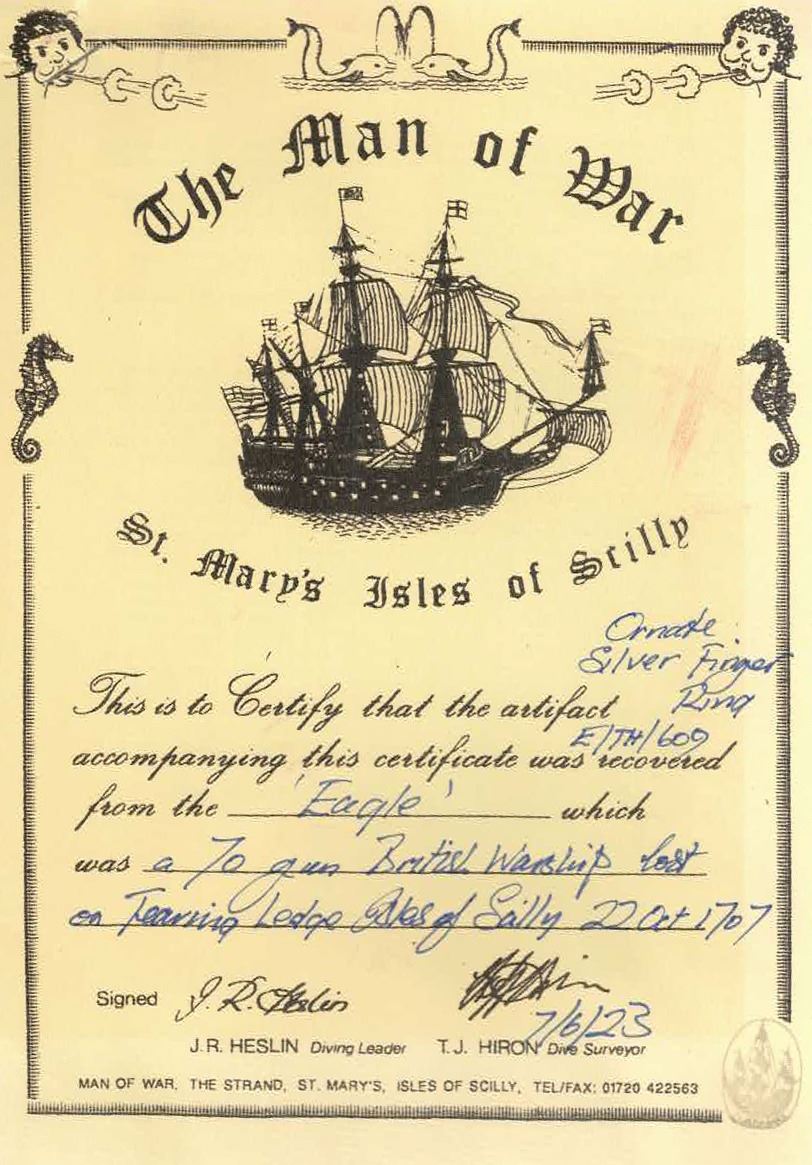 The Man of War
St. Mary's Isles of Scilly
Ornate
Silver Finger
Ring
E/TH/609
This is to Certify that the artifact
accompanying this certificate was recovered
from the 'Eagle' which
was a 70 gun British Warship lost
on Tearing Ledge Isles of Scilly 22 Oct 1707
Signed J. R. Heslin
7/6/23
J.R. HESLIN Diving Leader T.J. HIRON Dive Surveyor
MAN OF WAR, THE STRAND, ST. MARY'S, ISLES OF SCILLY, TEL/FAX: 01720 422563